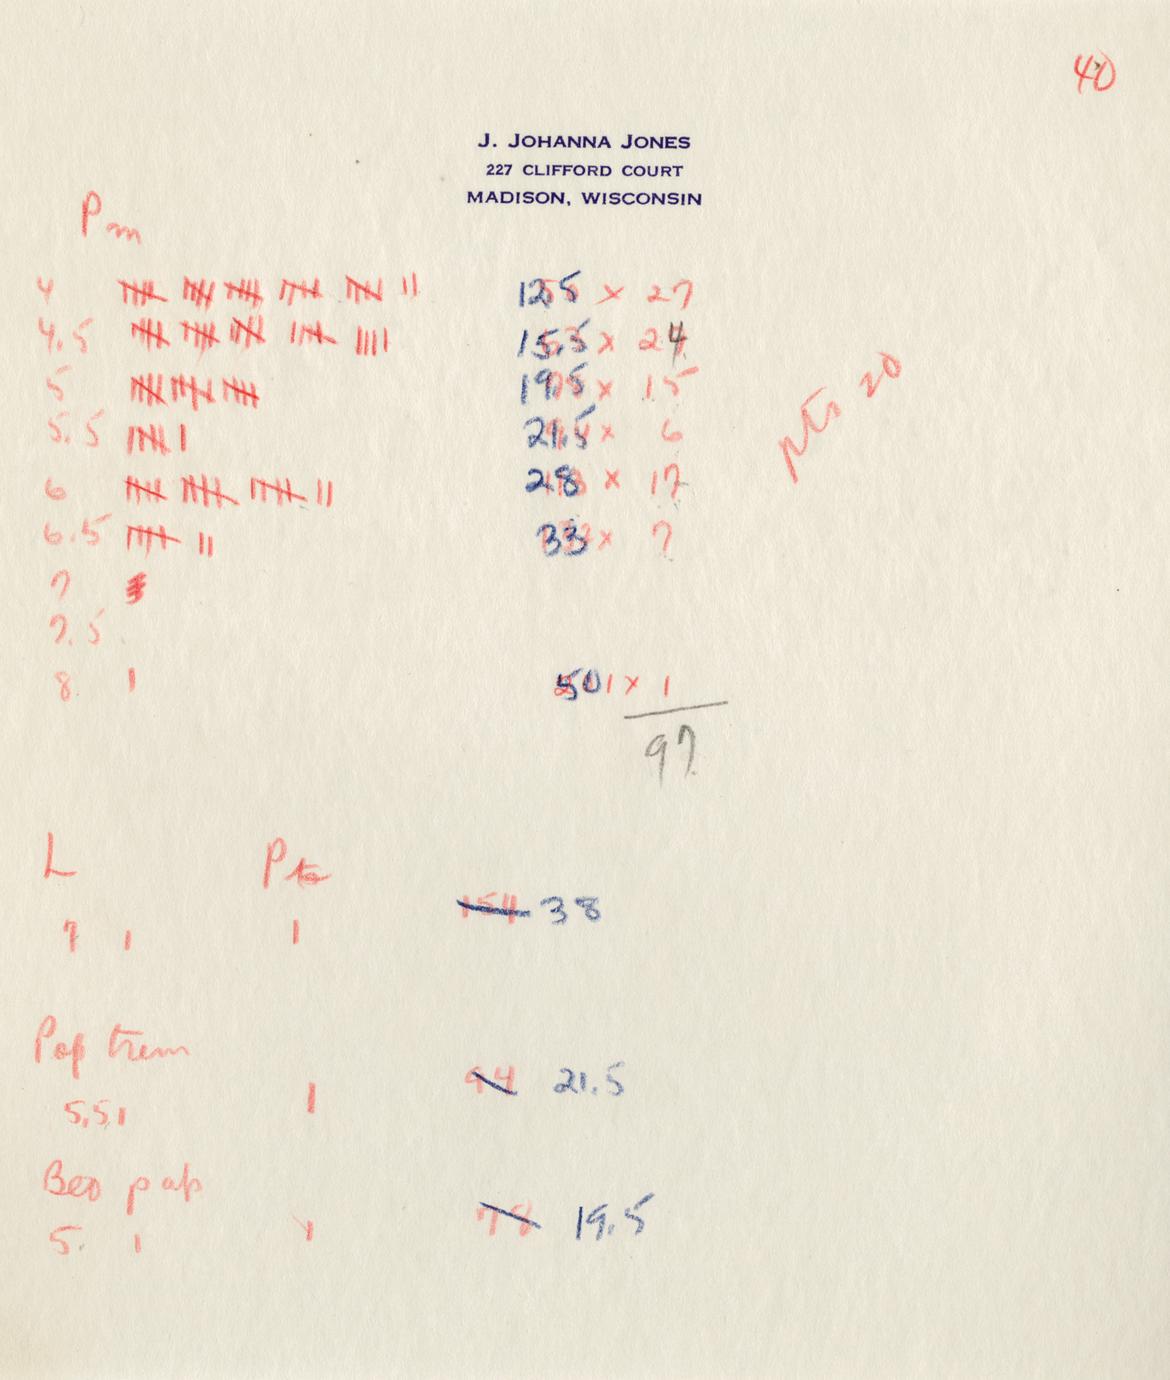 40
J. JOHANNA JONES
227 CLIFFORD COURT
MADISON, WISCONSIN
Pm
4 12.5 x 27
4.5 15.5 x 24
5 19.5 x 15
5.5 21.5 x 6
6 28 x 17
6.5 33 x 7
7
7.5
8 1 50 x 1
97
pts 20
L Pts
7 1 1 154 38
Pop trem
5.5 1 1 94 21.5
Beo pap
5. 1 1 78 19.5